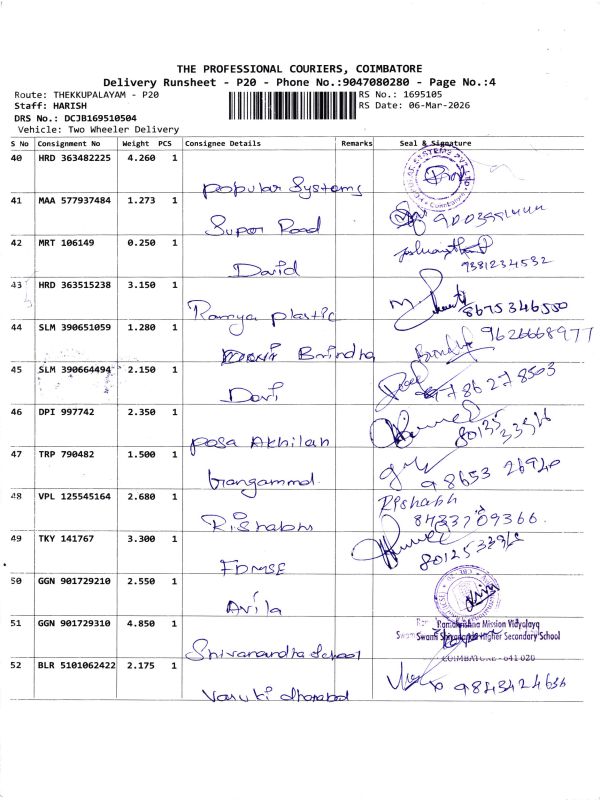 THE PROFESSIONAL COURIERS, COIMBATORE
Delivery Runsheet - P20 - Phone No.:9047080280 - Page No.:4
Route: THEKKUPALAYAM - P20 RS No.: 1695105
Staff: HARISH RS Date: 06-Mar-2026
DRS No.: DCJB169510504
Vehicle: Two Wheeler Delivery
S No Consignment No Weight PCS Consignee Details Remarks Seal & Signature
40 HRD 363482225 4.260 1
Popular Systems
41 MAA 577937484 1.273 1
Super Road
42 MRT 106149 0.250 1
David 9381234532
43 HRD 363515238 3.150 1
Ramya plastic 8675346550
44 SLM 390651059 1.280 1
Brindha Brindha 9626668977
45 SLM 390664494 2.150 1
Davi 9786278503
46 DPI 997742 2.350 1
posa Akhilan
47 TRP 790482 1.500 1
Gangammal 98653 26940
48 VPL 125545164 2.680 1 Rishabh
Rishabh 8433709366
49 TKY 141767 3.300 1
FDMSE
50 GGN 901729210 2.550 1
Avila
51 GGN 901729310 4.850 1 Ramakrishna Mission Vidyalaya
Swami Shivananda Higher Secondary School
Shivanandha School COIMBATORE - 641 020
52 BLR 5101062422 2.175 1
9843424656